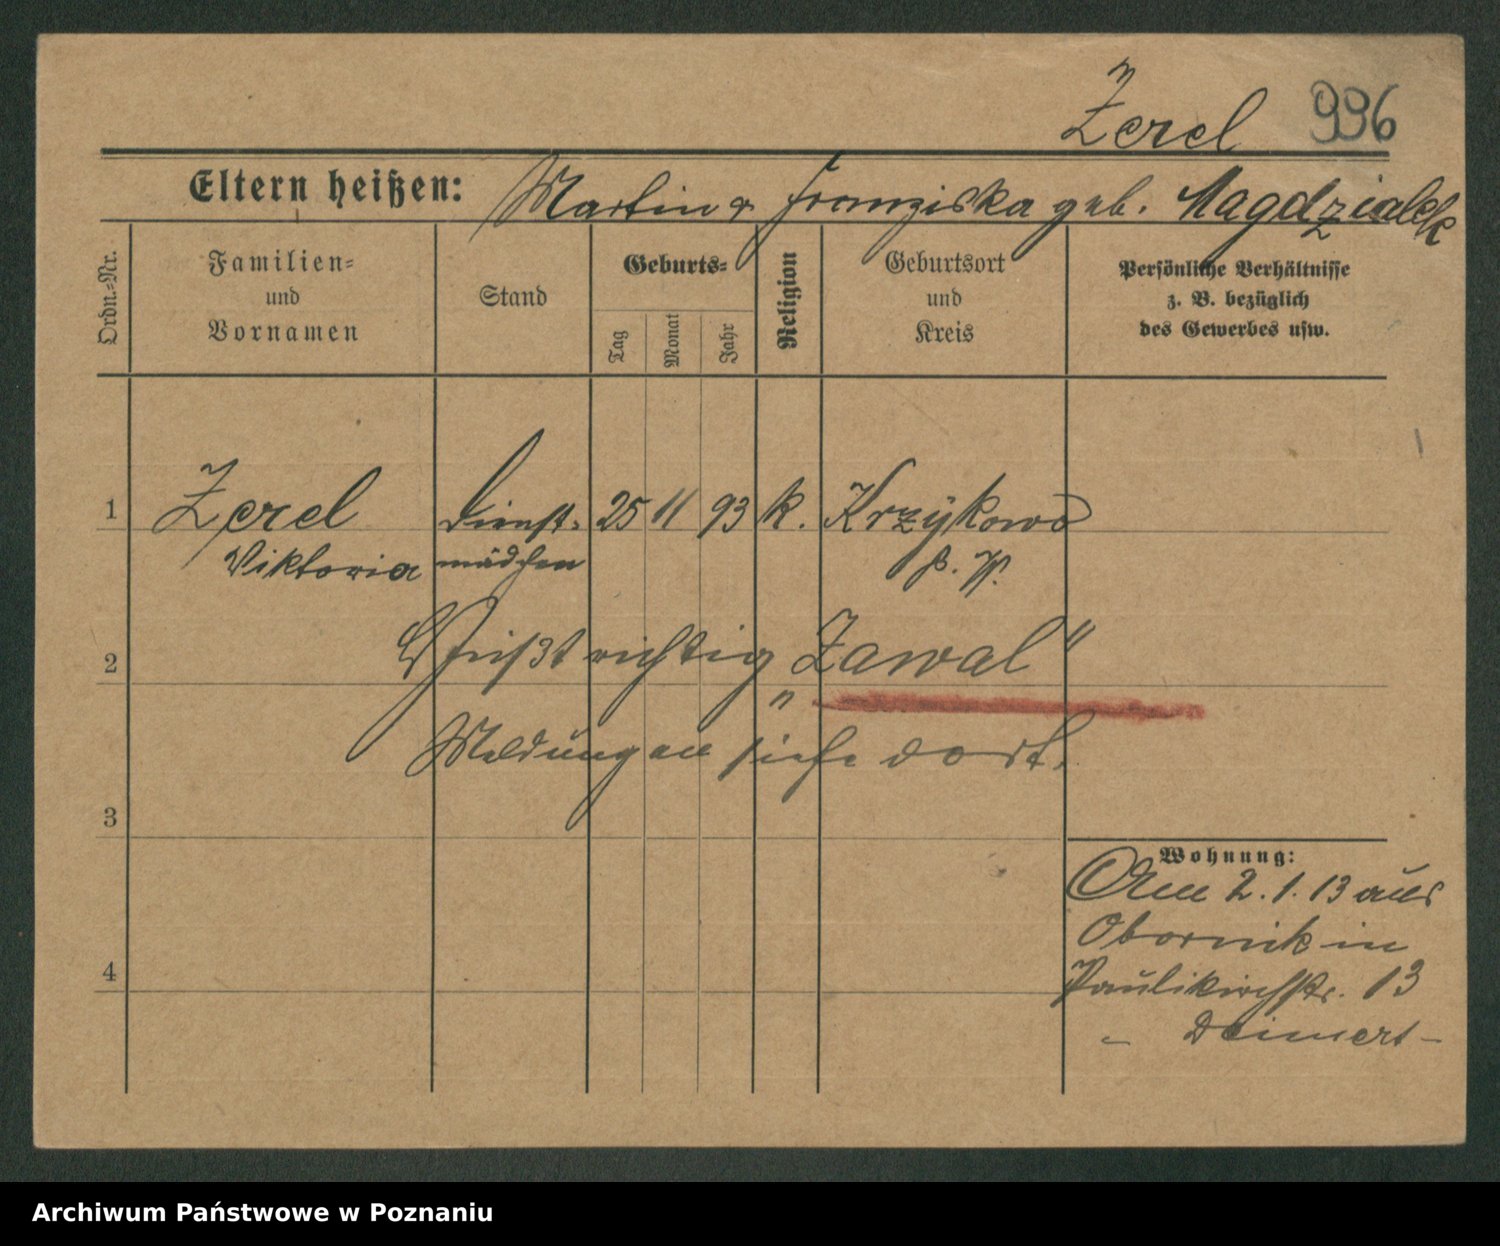 Zerel 996
Eltern heißen: Martin & Franziska geb. Magdzialek
Ordn.-Nr.
Familien-
und
Vornamen
Stand
Geburts-
Tag
Monat
Jahr
Religion
Geburtsort
und
Kreis
Persönliche Verhältnisse
z. B. bezüglich
des Gewerbes usw.
1 Zerel Dienst- 25 11 93 k. Krzykowo
Viktoria mädchen
2 Heißt richtig „Zawal"
Meldungen siehe dort.
3
Wohnung:
Am 2.1.13 aus
Obornik in
4 Paulikirchstr. 13
- Deimert -
Archiwum Państwowe w Poznaniu